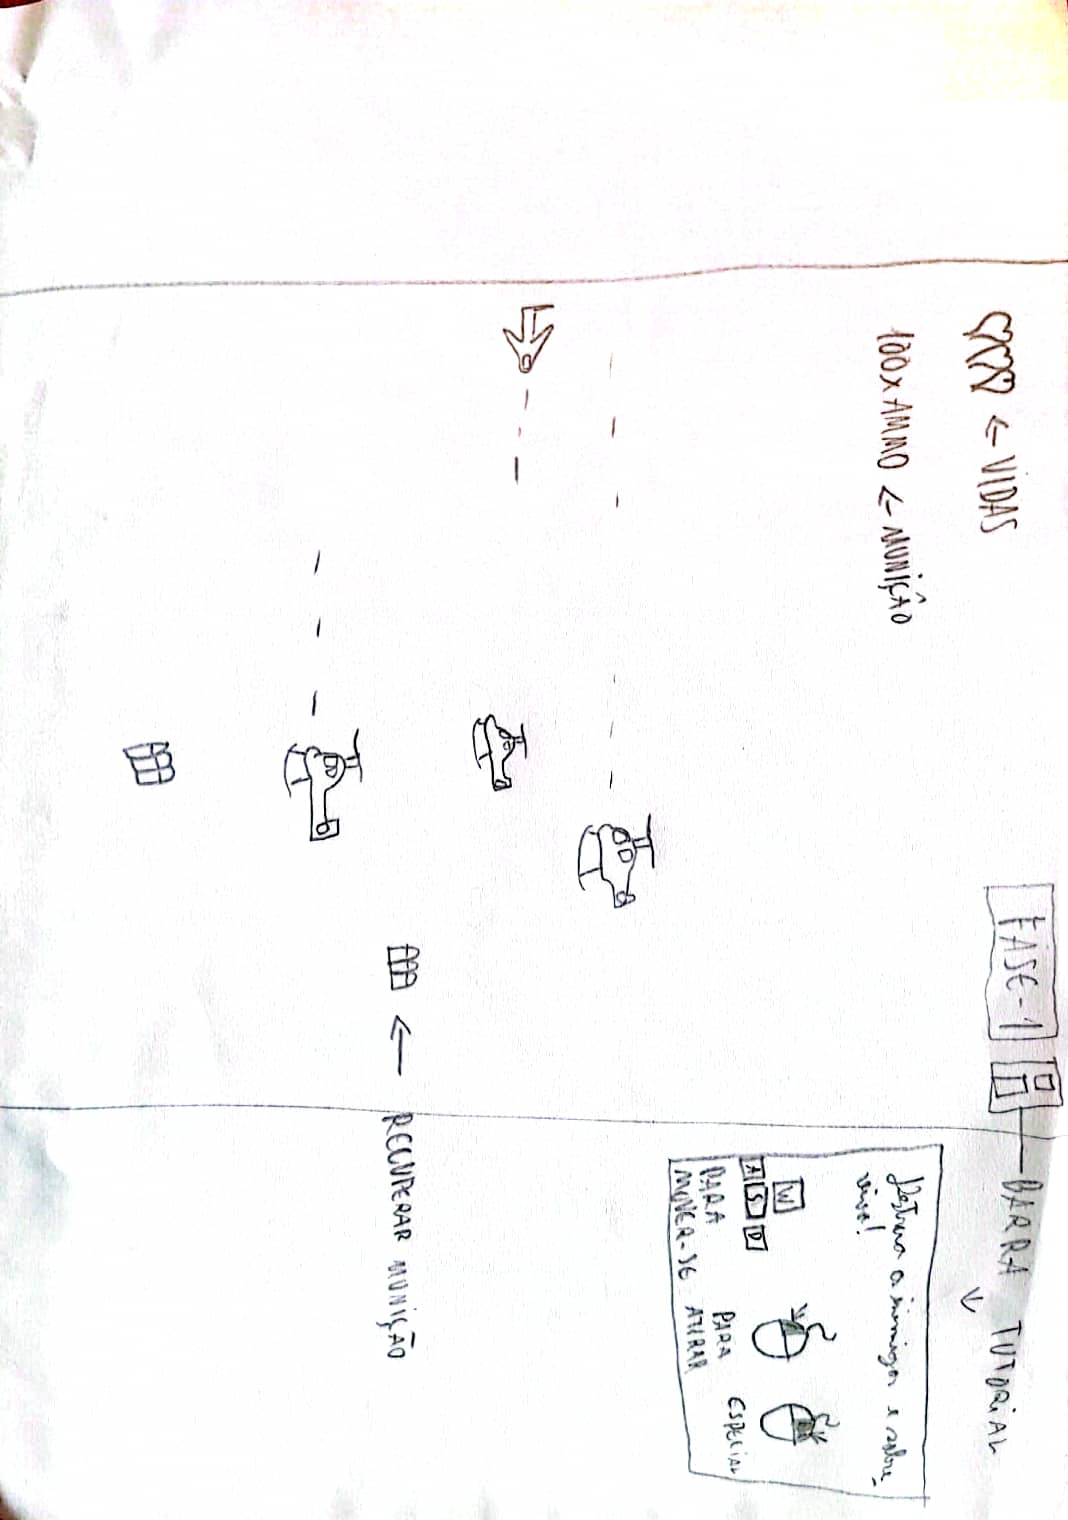 ← VIDAS
100x AMMO ← MUNIÇÃO
FASE-1
BARRA TUTORIAL
Destrua os inimigos e sobre-
viva!
W
A S D
PARA
MOVER-SE
PARA
ATIRAR
ESPECIAL
← RECUPERAR MUNIÇÃO